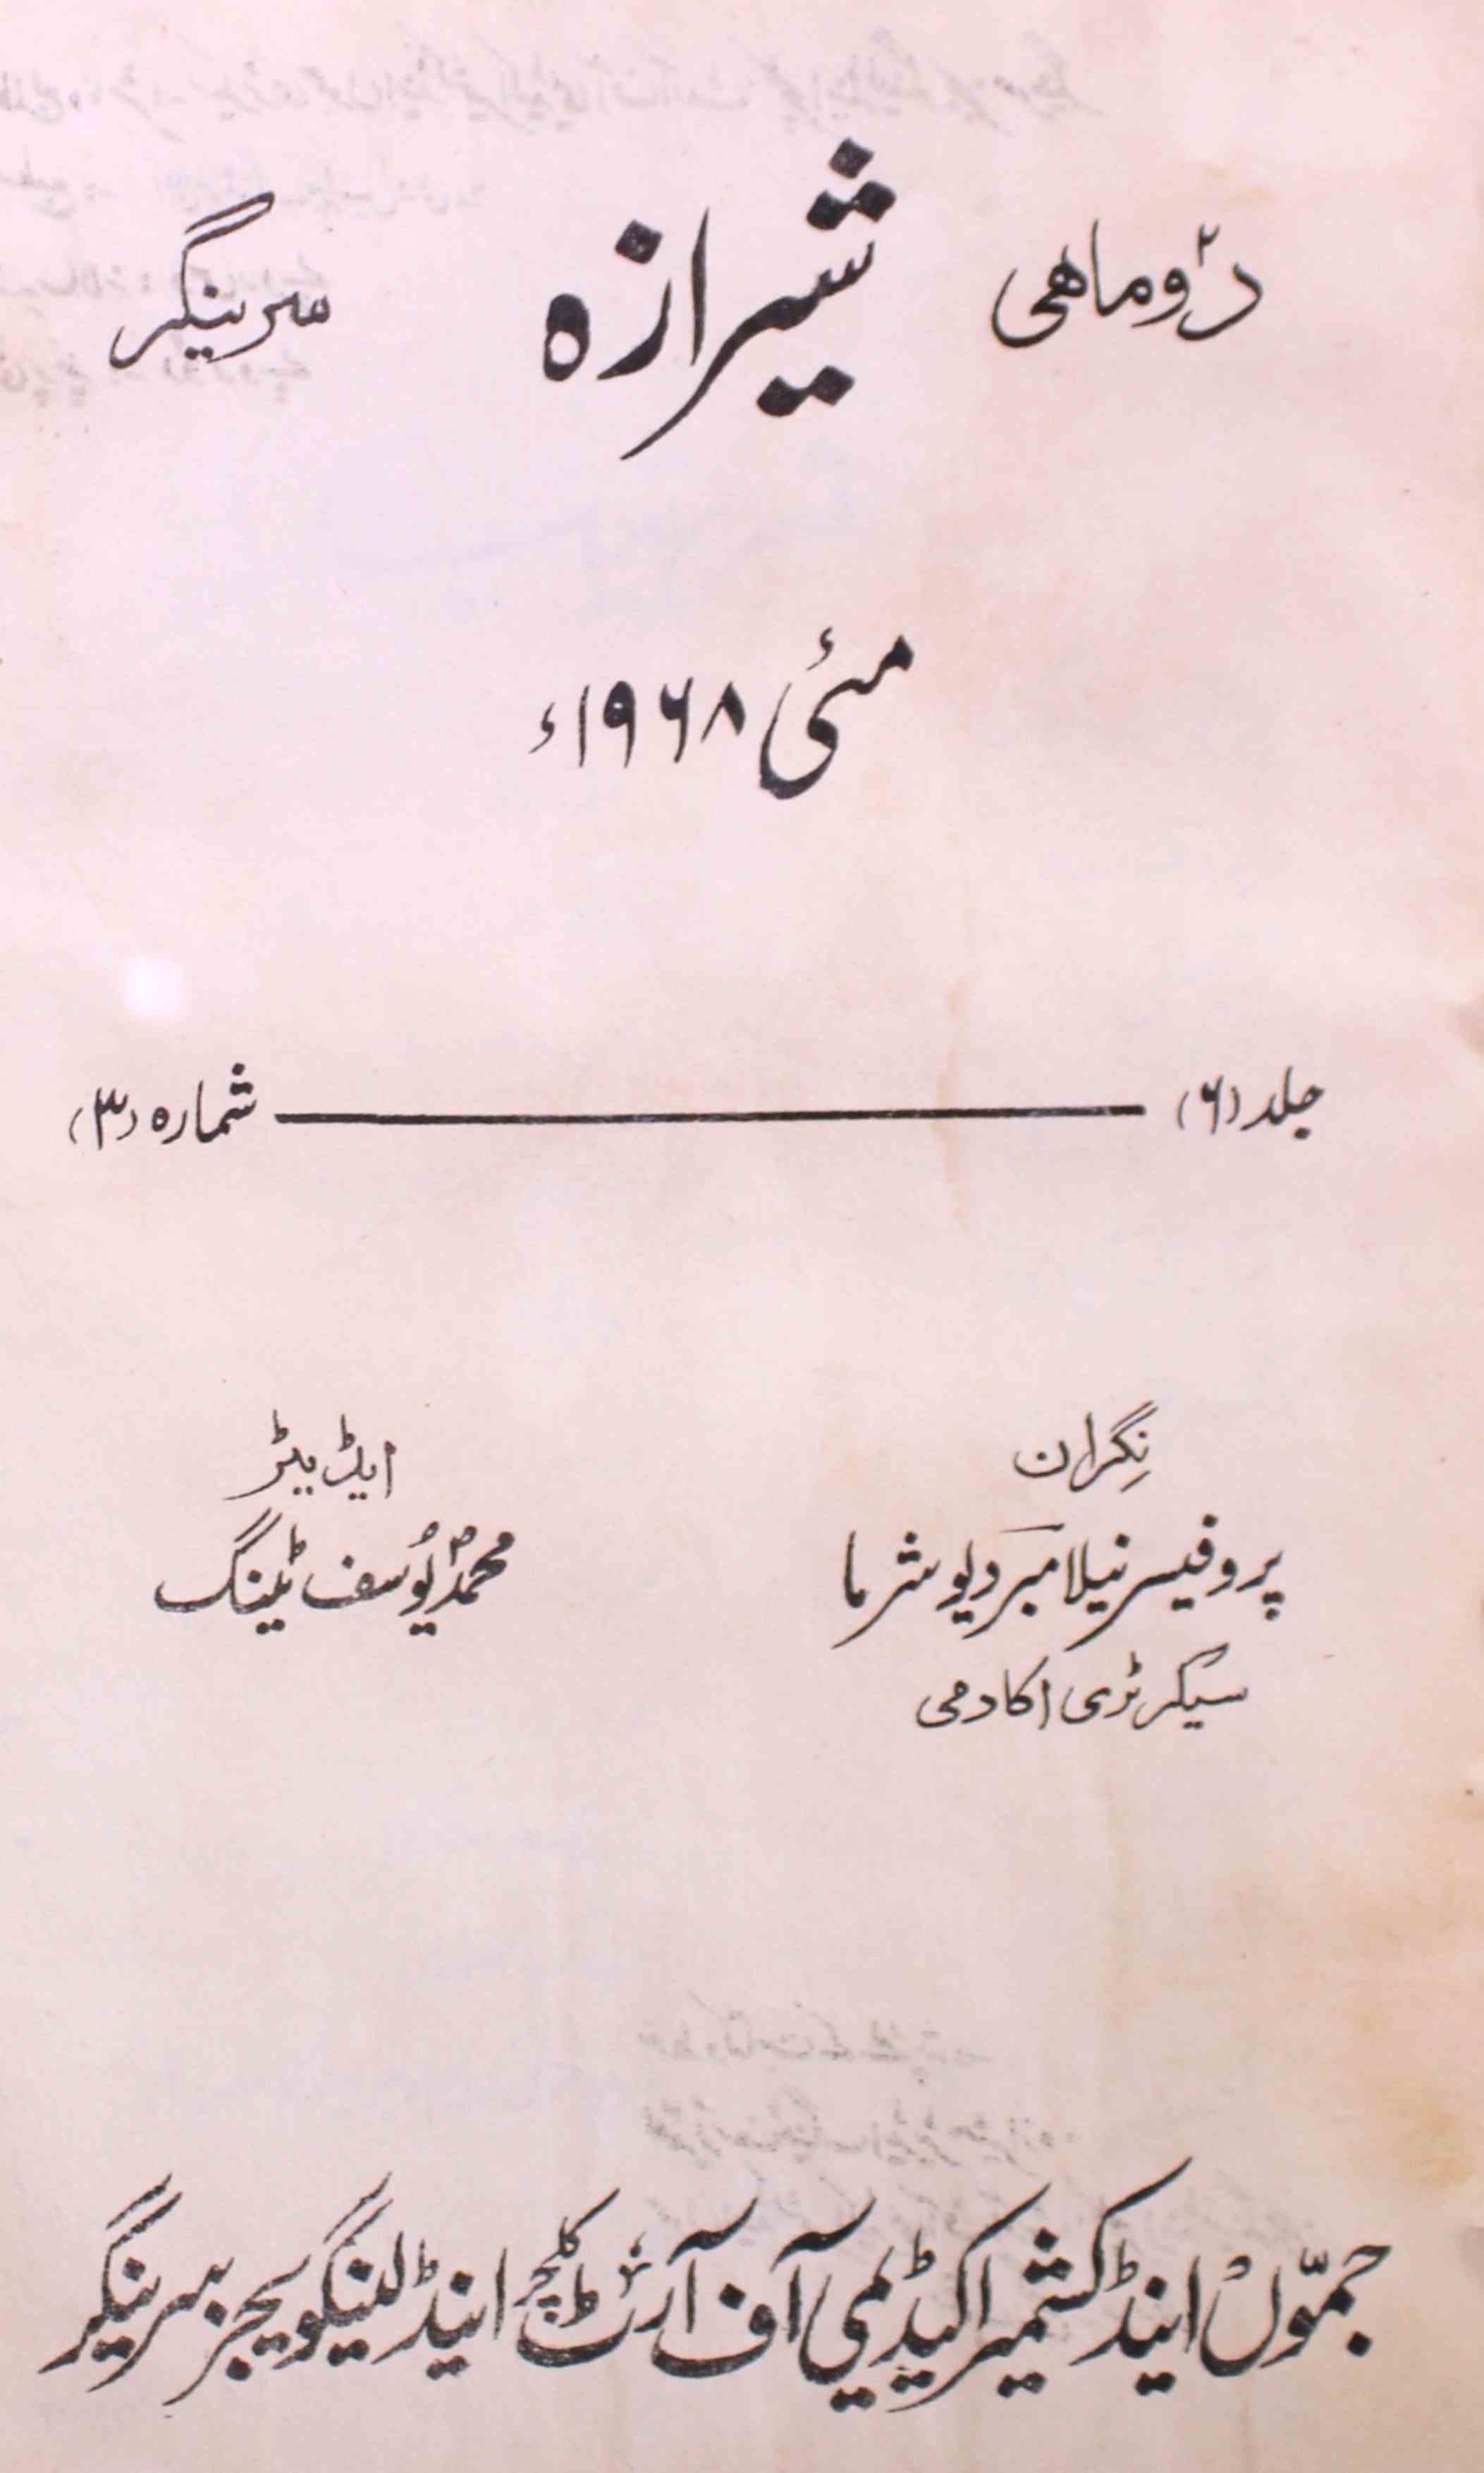 دوماهی شیرازه سرینگر
مئی ۱۹۶۸ء
جلد (۶) شماره (۳)
نِگران
پروفیسر نیلامبر دیو شرما
سیکرٹری اکادمی
ایڈیٹر
محمد یُوسف ٹینگ
جمّوں اینڈ کشمیر اکیڈیمی آف آرٹ کلچر اینڈ لینگویجز سرینگر